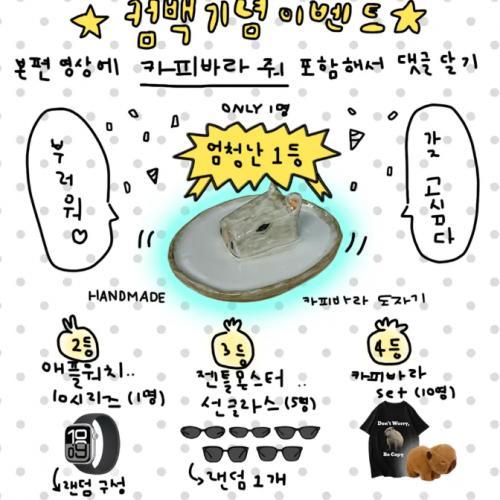 ★컴백기념이벤트★
본편 영상에 카피바라 줘 포함해서 댓글 달기
ONLY 1명
엄청난 1등
부러워♡
갖고싶다
HANDMADE
카피바라 도자기
2등
애플워치..
10시리즈 (1명)
↳랜덤 구성
3등
젠틀몬스터..
선글라스 (5명)
↳랜덤 1개
4등
카피바라
set (10명)
Don't Worry,
Be Capy